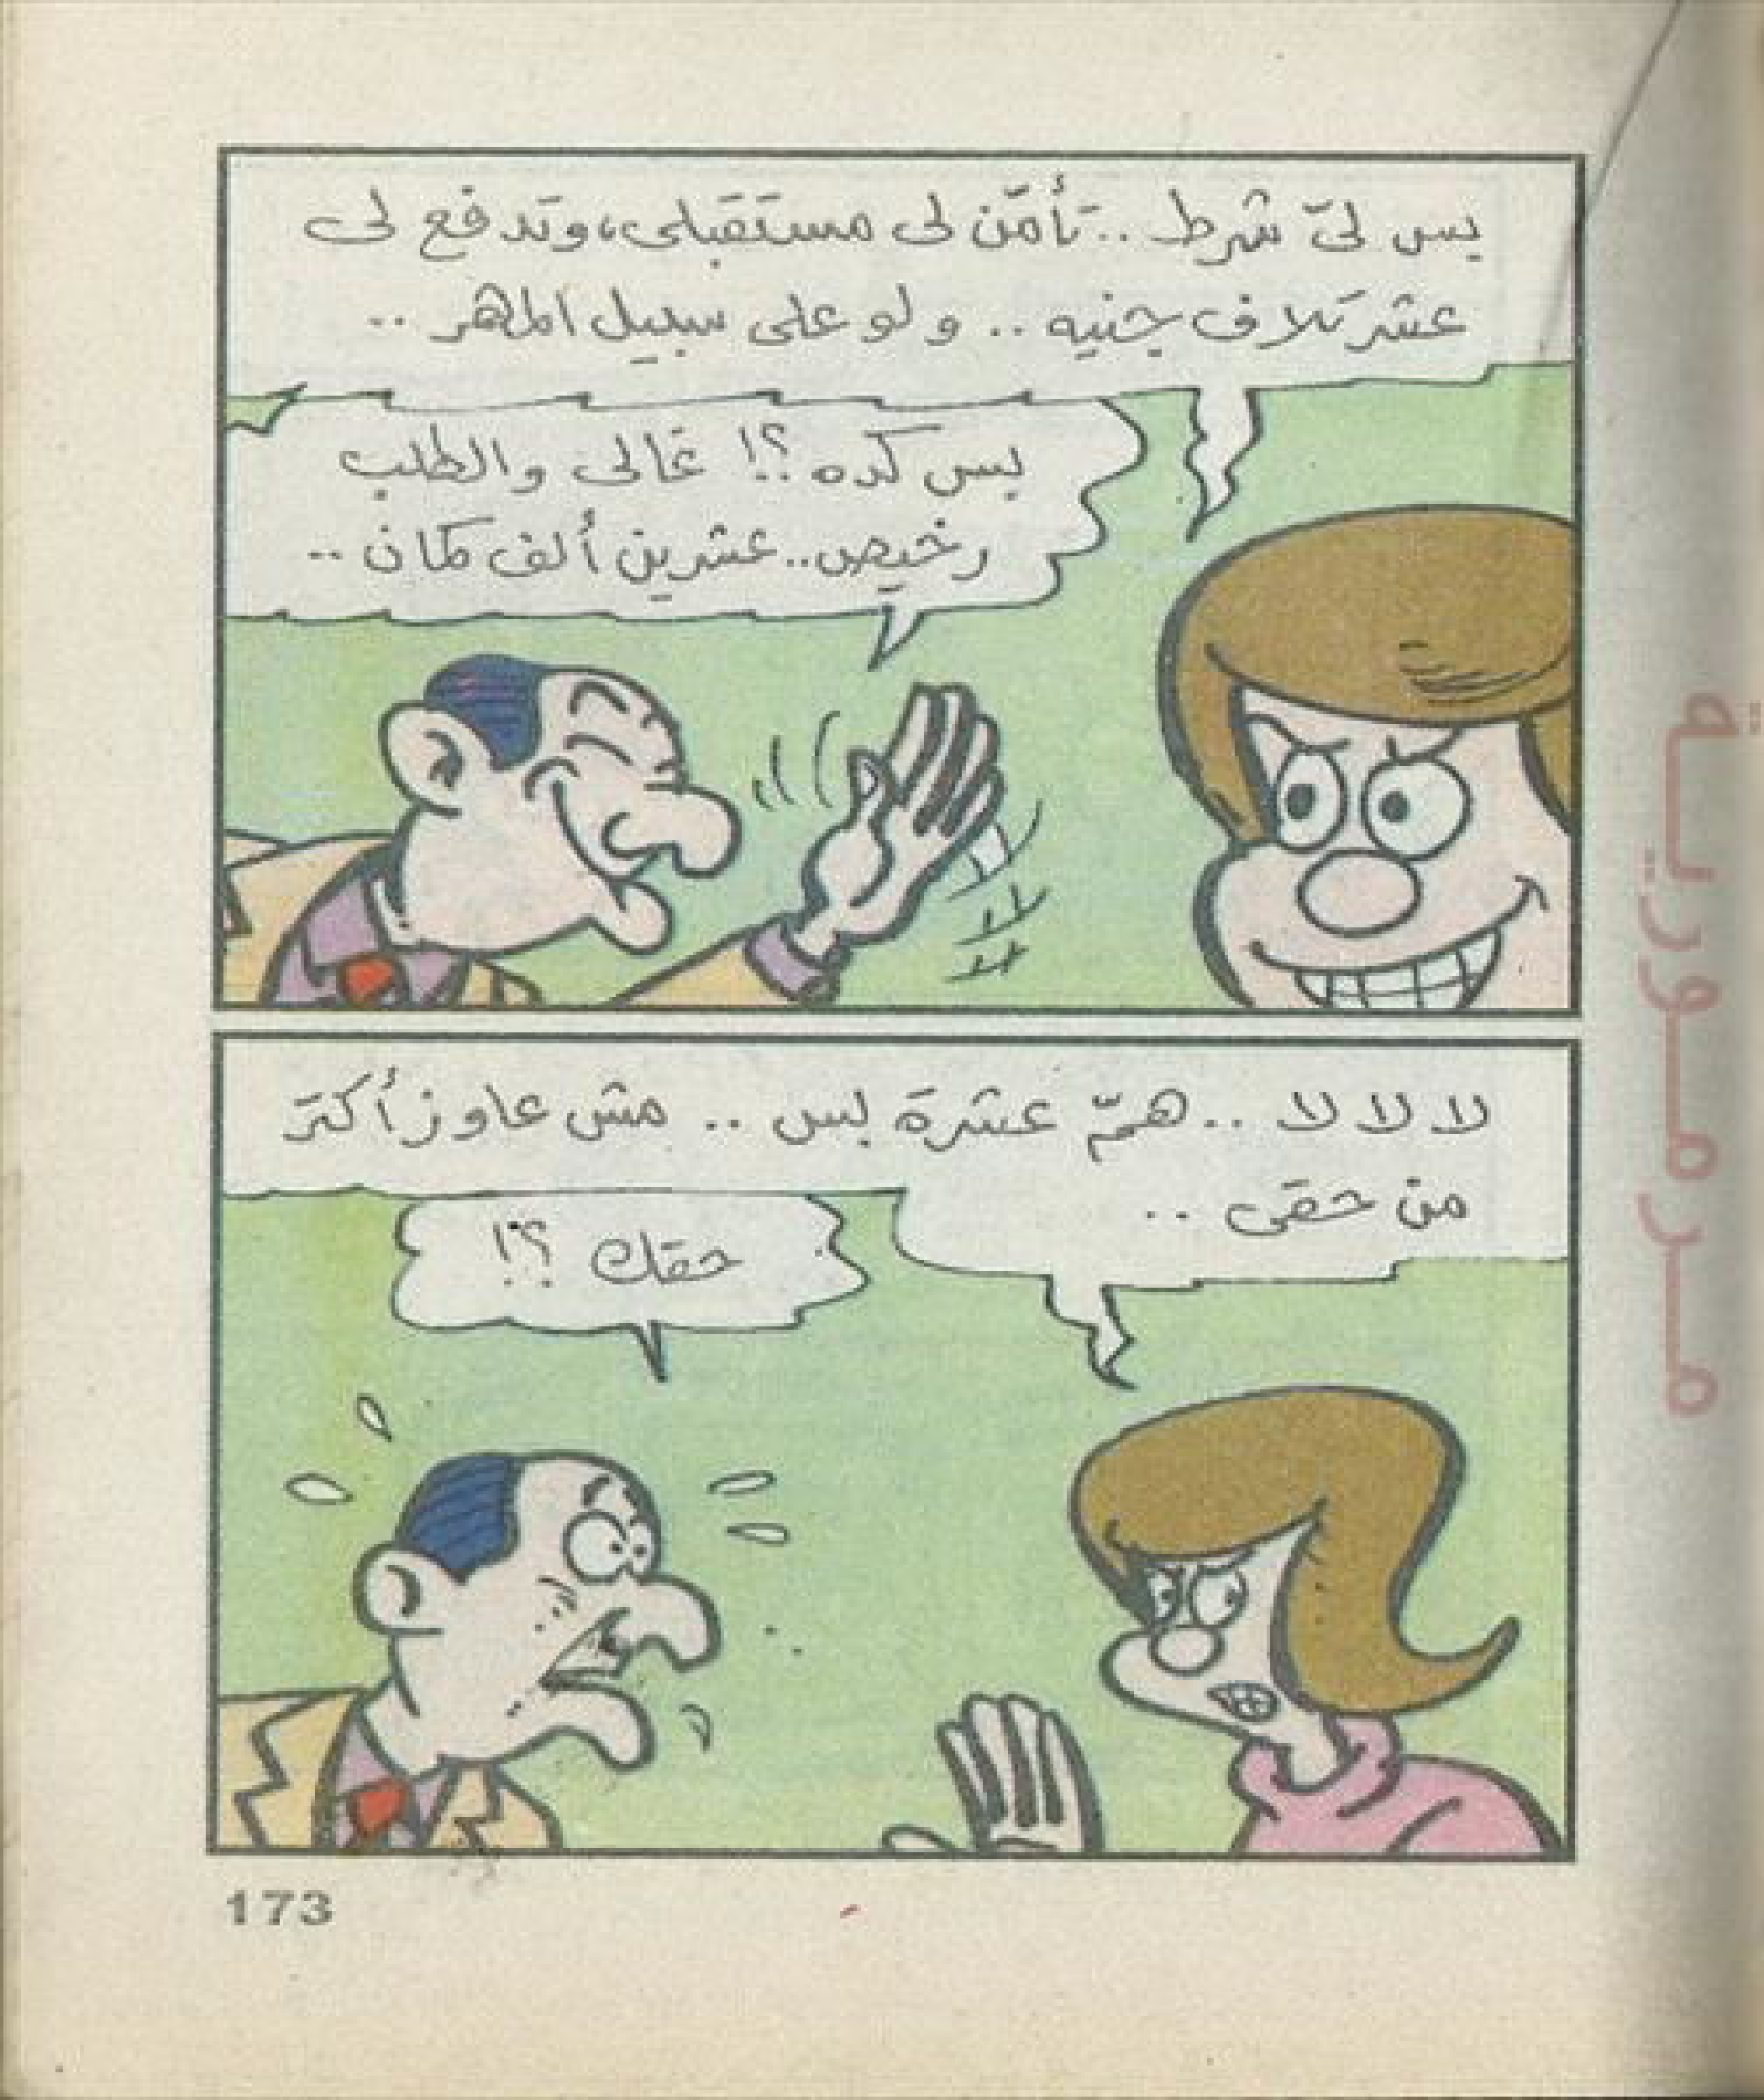 بس لىّ شرط .. تأمّن لى مستقبلى، وتدفع لى
عشر تلاف جنيه .. ولو على سبيل المهر ..
بس كده ؟! غالى والطلب
رخيص .. عشرين ألف كمان ..
لا لا لا .. همّ عشرة بس .. مش عاوز أكتر
من حقى ..
حقك ؟!
173
مرمورية